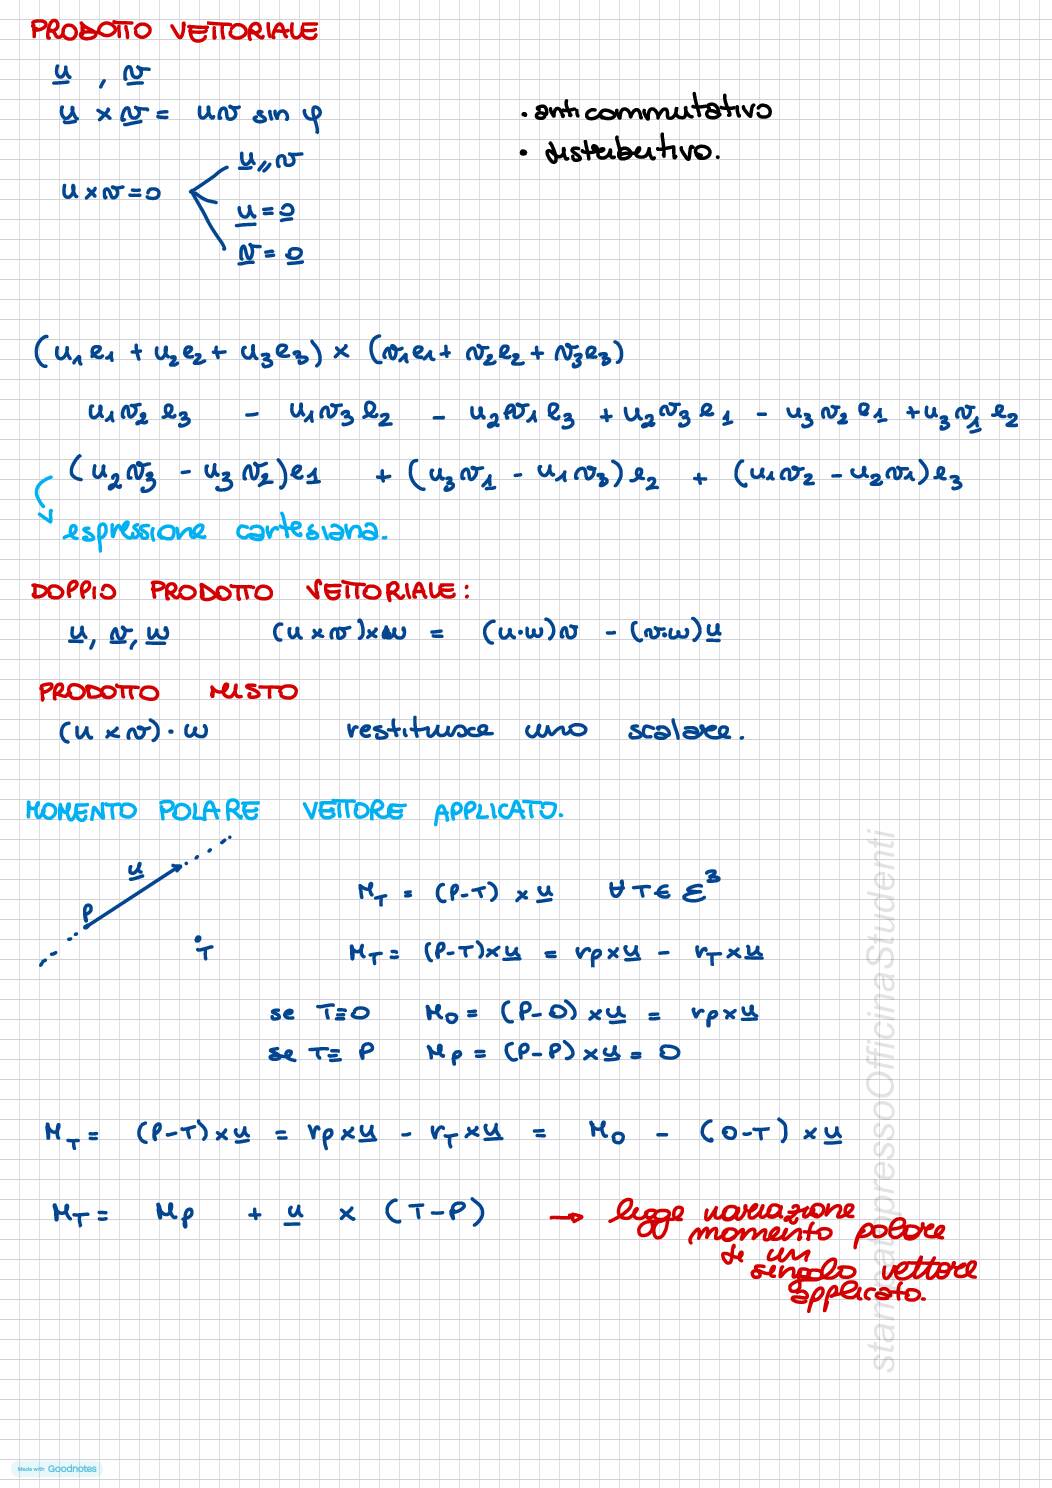 PRODOTTO VETTORIALE
u , v
u × v = uv sin φ
• anticommutativo
• distributivo.
u × v = 0
u // v
u = 0
v = 0
(u1 e1 + u2 e2 + u3 e3) × (v1 e1 + v2 e2 + v3 e3)
u1 v2 e3 - u1 v3 e2 - u2 v1 e3 + u2 v3 e1 - u3 v2 e1 + u3 v1 e2
(u2 v3 - u3 v2) e1 + (u3 v1 - u1 v3) e2 + (u1 v2 - u2 v1) e3
espressione cartesiana.
DOPPIO PRODOTTO VETTORIALE:
u, v, w (u × v) × w = (u·w) v - (v·w) u
PRODOTTO MISTO
(u × v) · w restituisce uno scalare.
MOMENTO POLARE VETTORE APPLICATO.
u
P
T
M_T = (P-T) × u ∀ T ∈ ℰ^3
M_T = (P-T) × u = r_P × u - r_T × u
se T≡O M_O = (P-O) × u = r_P × u
se T≡P M_P = (P-P) × u = 0
M_T = (P-T) × u = r_P × u - r_T × u = M_O - (O-T) × u
M_T = M_P + u × (T-P) → legge variazione
momento polare
di un
singolo vettore
applicato.
stampato presso OfficinaStudenti
Made with Goodnotes